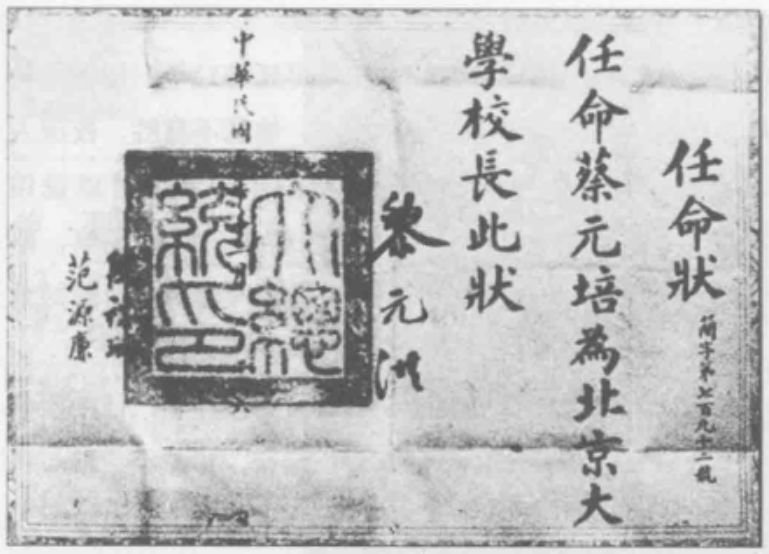 任命狀
簡字第七百九十三號
任命蔡元培為北京大
學校長此狀
黎元洪
大總
統印
中華民國
范源廉